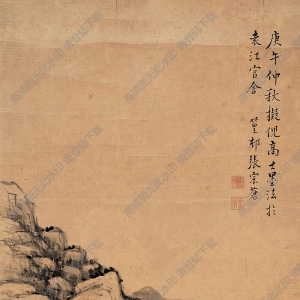 庚午仲秋擬倪高士墨法於
袁江官舍　篁邨張宗蒼